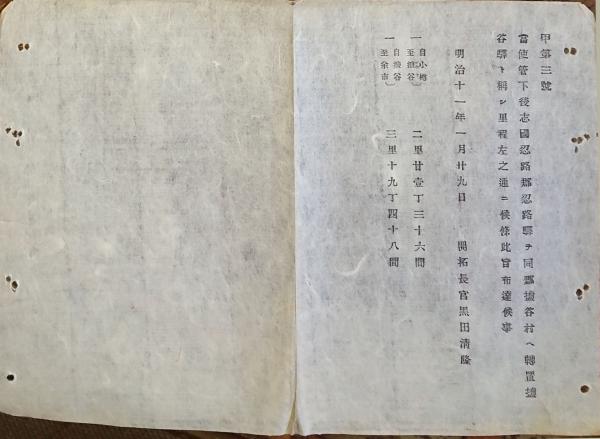 甲第三號
當使管下後志國忍路郡忍路驛ヲ同郡塩谷村ヘ轉置塩
谷驛ト稱シ里程左之通ニ候條此旨布達候事
明治十一年一月廿九日 開拓長官黒田清隆
一 自小樽 至塩谷 二里廿壹丁三十六間
一 自塩谷 至余市 三里十九丁四十八間